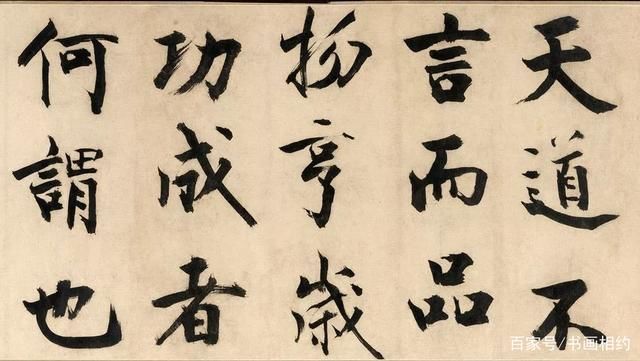 天道不
言而品
物亨歲
功成者
何謂也
百家号/书画相约